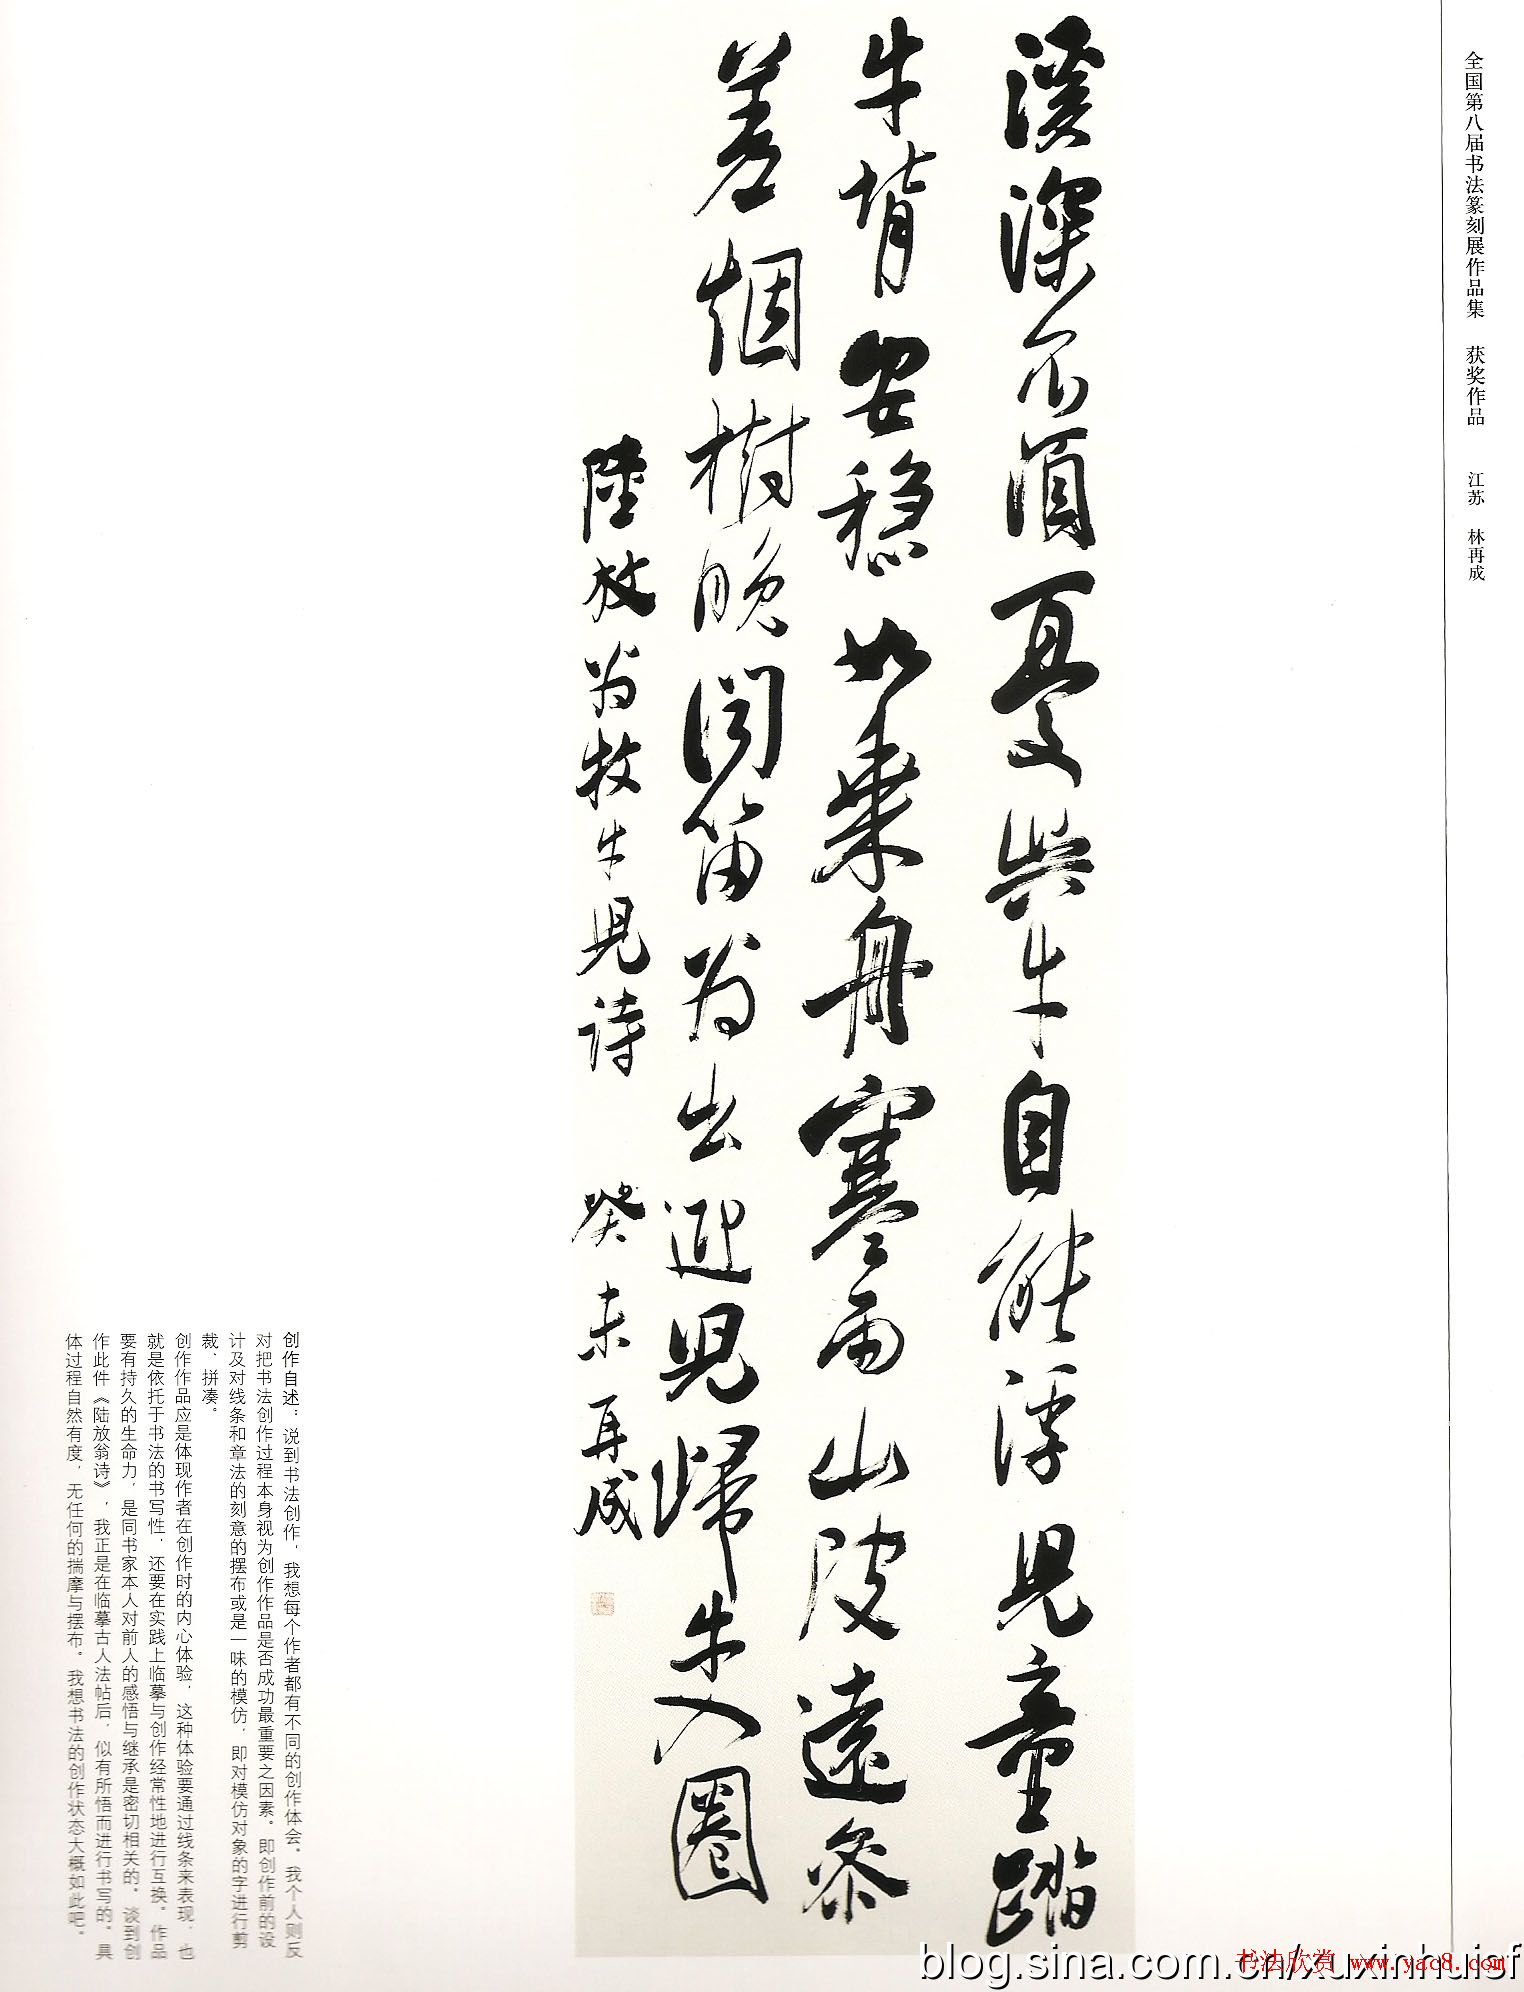 全国第八届书法篆刻展作品集 获奖作品 江苏 林再成
溪深不須憂吳牛自能浮兒童踏
牛背安穩如乘舟寒雨山陂遠參
差烟樹晚聞笛翁出迎兒歸牛入圈
陸放翁牧牛兒詩 癸未再成
创作自述：说到书法创作，我想每个作者都有不同的创作体会。我个人则反
对把书法创作过程本身视为创作作品是否成功最重要之因素。即创作前的设
计及对线条和章法的刻意的摆布或是一味的模仿，即对模仿对象的字进行剪
裁、拼凑。
创作作品应是体现作者在创作时的内心体验，这种体验要通过线条来表现，也
就是依托于书法的书写性，还要在实践上临摹与创作经常性地进行互换。作品
要有持久的生命力，是同书家本人对前人的感悟与继承是密切相关的。谈到创
作此件《陆放翁诗》，我正是在临摹古人法帖后，似有所悟而进行书写的。具
体过程自然有度，无任何的揣摩与摆布。我想书法的创作状态大概如此吧。
blog.sina.com.cn/xuxinhuisf
书法欣赏 www.yac8.com